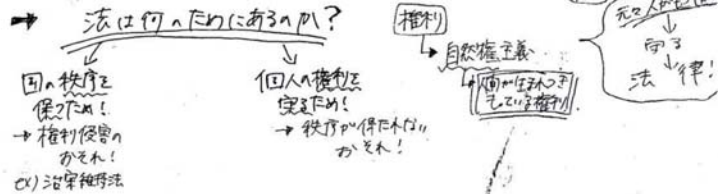 → 法は何のためにあるのか?
国の秩序を
保つため!
→ 権利侵害の
おそれ!
ex) 治安維持法
個人の権利を
守るため!
→ 秩序が保たれない
おそれ!
権利
自然権主義
人間が生まれつき
もっている権利
元々人が
↓
守る
↓
法律!